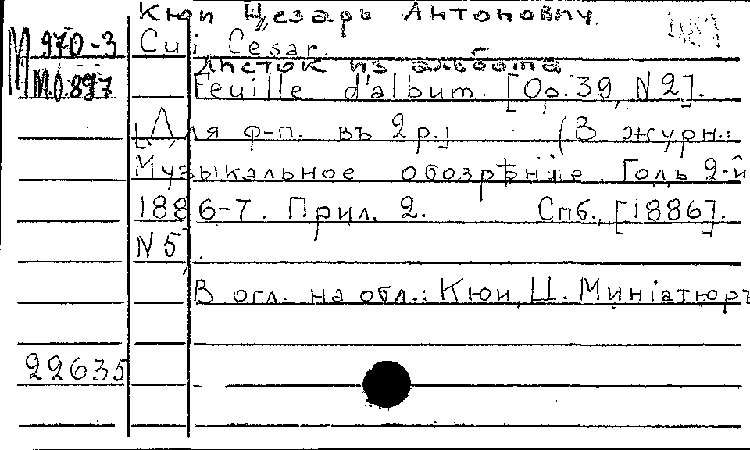 Кюи Цезарь Антонович.
М 970-3 Cui César.
Листок из альбома
МО.897 Feuille d'album. [Op. 39, N2].
[Для ф-п. въ 2 р.] (В журн.:
Музыкальное обозрѣніе. Годъ 2-й
1886-7. Прил. 2. Спб., [1886].
N 5).
В огл. на обл.: Кюи, Ц. Миніатюръ
22635